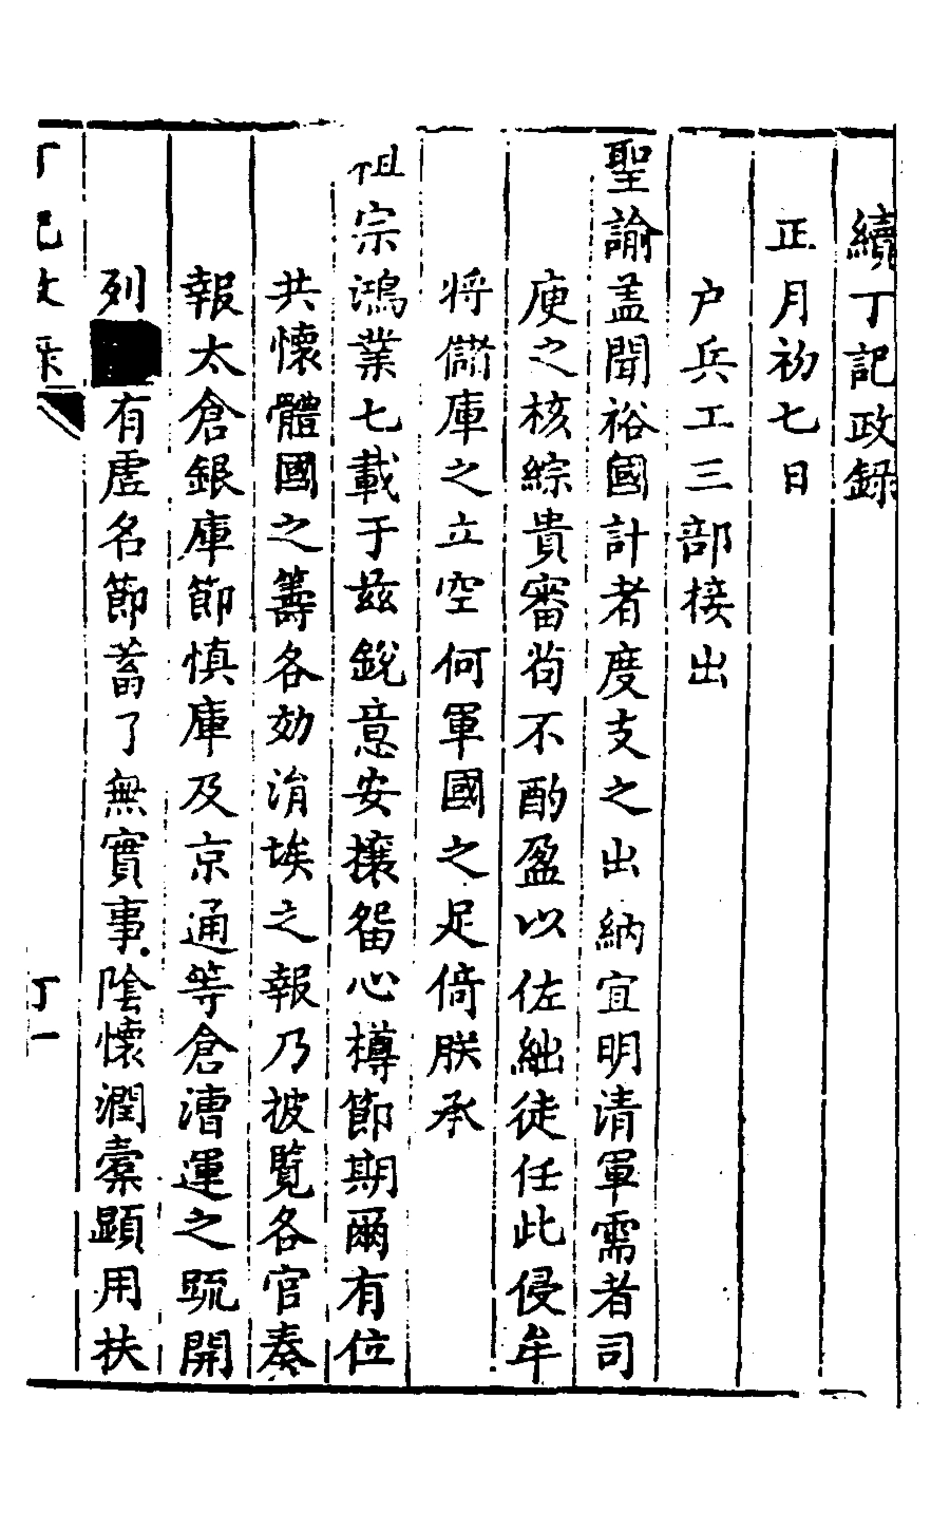 續丁記政録
正月初七日
户兵工三部接出
聖諭盖聞裕國計者度支之出納宜明清軍需者司
庾之核綜貴審茍不酌盈以佐絀徒任此侵牟
将儲庫之立空何軍國之足倚朕承
祖宗鴻業七載于兹鋭意安攘留心樽節期爾有位
共懷體國之籌各効涓埃之報乃披覧各官奏
報太倉銀庫節慎庫及京通等倉漕運之䟽開
列有虚名節蓄了無實事陰懷潤橐顕用扶
丁
丁一